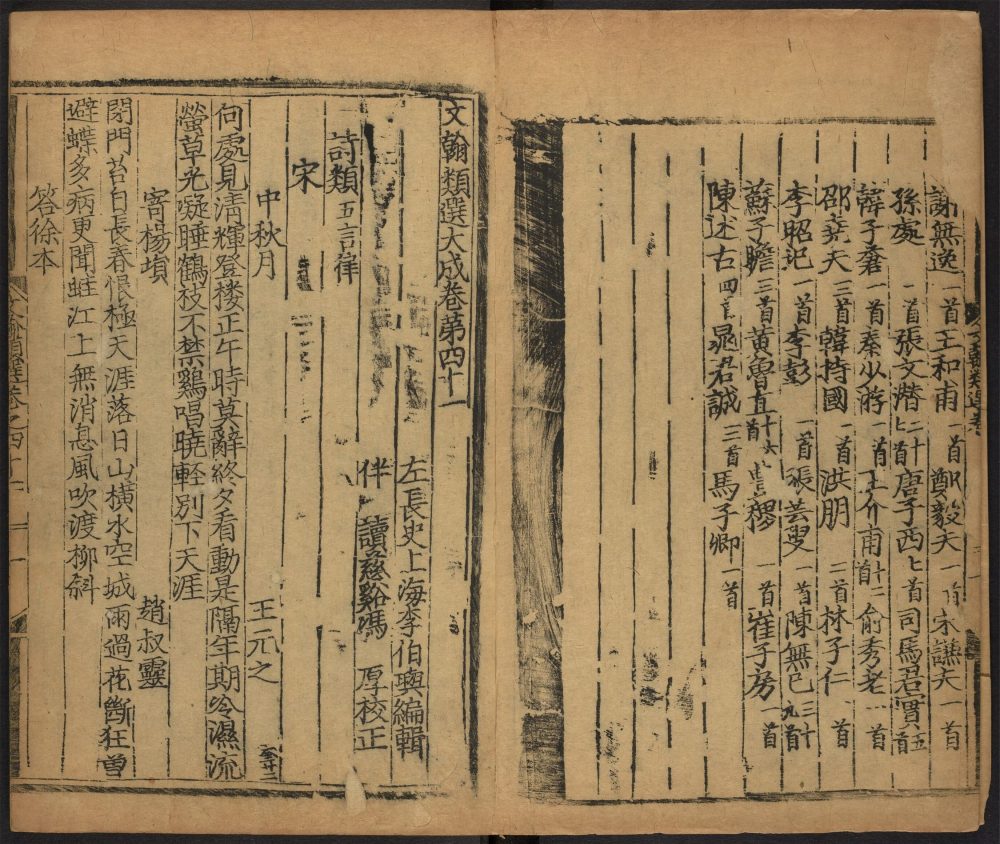 謝無逸一首王和甫一首鄭毅夫一首宋讌夫一首
孫處一首張文潛二十七首唐子西七首司馬君實五首
韓子蒼一首秦少游一首王介甫十二首俞秀老一首
邵堯夫三首韓持國一首洪朋二首林子仁一首
李昭玘一首李彭一首張芸叟一首陳無己三十九首
蘇子瞻三首黃魯直十六首豊稷一首崔子方一首
陳述古四首晁君誠三首馬子卿一首
文翰類選大成卷第四十一
左長史上海李伯璵編輯
伴讀慈谿馮厚校正
詩類五言律
宋
中秋月 王元之
何處見清輝登楼正午時莫辭終夕看動是隔年期冷濕流
螢草光凝睡鶴枝不禁鷄唱曉軽別下天涯
寄楊塤 趙叔靈
閉門苔自長春恨極天涯落日山橫水空城雨過花斷狂曽
避蝶多病更聞蛙江上無消息風吹渡柳斜
答徐本